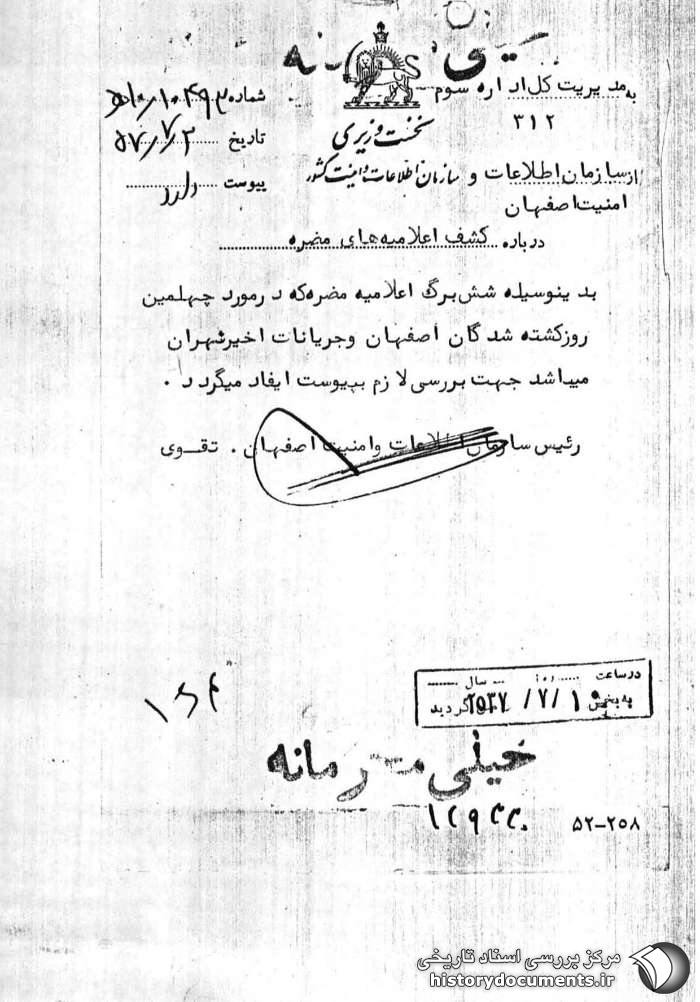 به مدیریت کل اداره سوم
۳۱۲
نخست وزیری
سازمان اطلاعات و امنیت کشور
شماره
تاریخ ۵۷/۷/۲
پیوست دارد
از سازمان اطلاعات و
امنیت اصفهان
درباره کشف اعلامیه‌های مضره
بدینوسیله شش برگ اعلامیه مضره که در مورد چهلمین
روز کشته شدگان اصفهان و جریانات اخیر تهران
میباشد جهت بررسی لازم بپیوست ایفاد میگردد .
رئیس سازمان اطلاعات و امنیت اصفهان . تقوی
در ساعت روز سال
به بخش ۱۰/۷/۲۵۳۷ گردید
خیلی محرمانه
۵۲-۲۵۸
مرکز بررسی اسناد تاریخی
historydocuments.ir